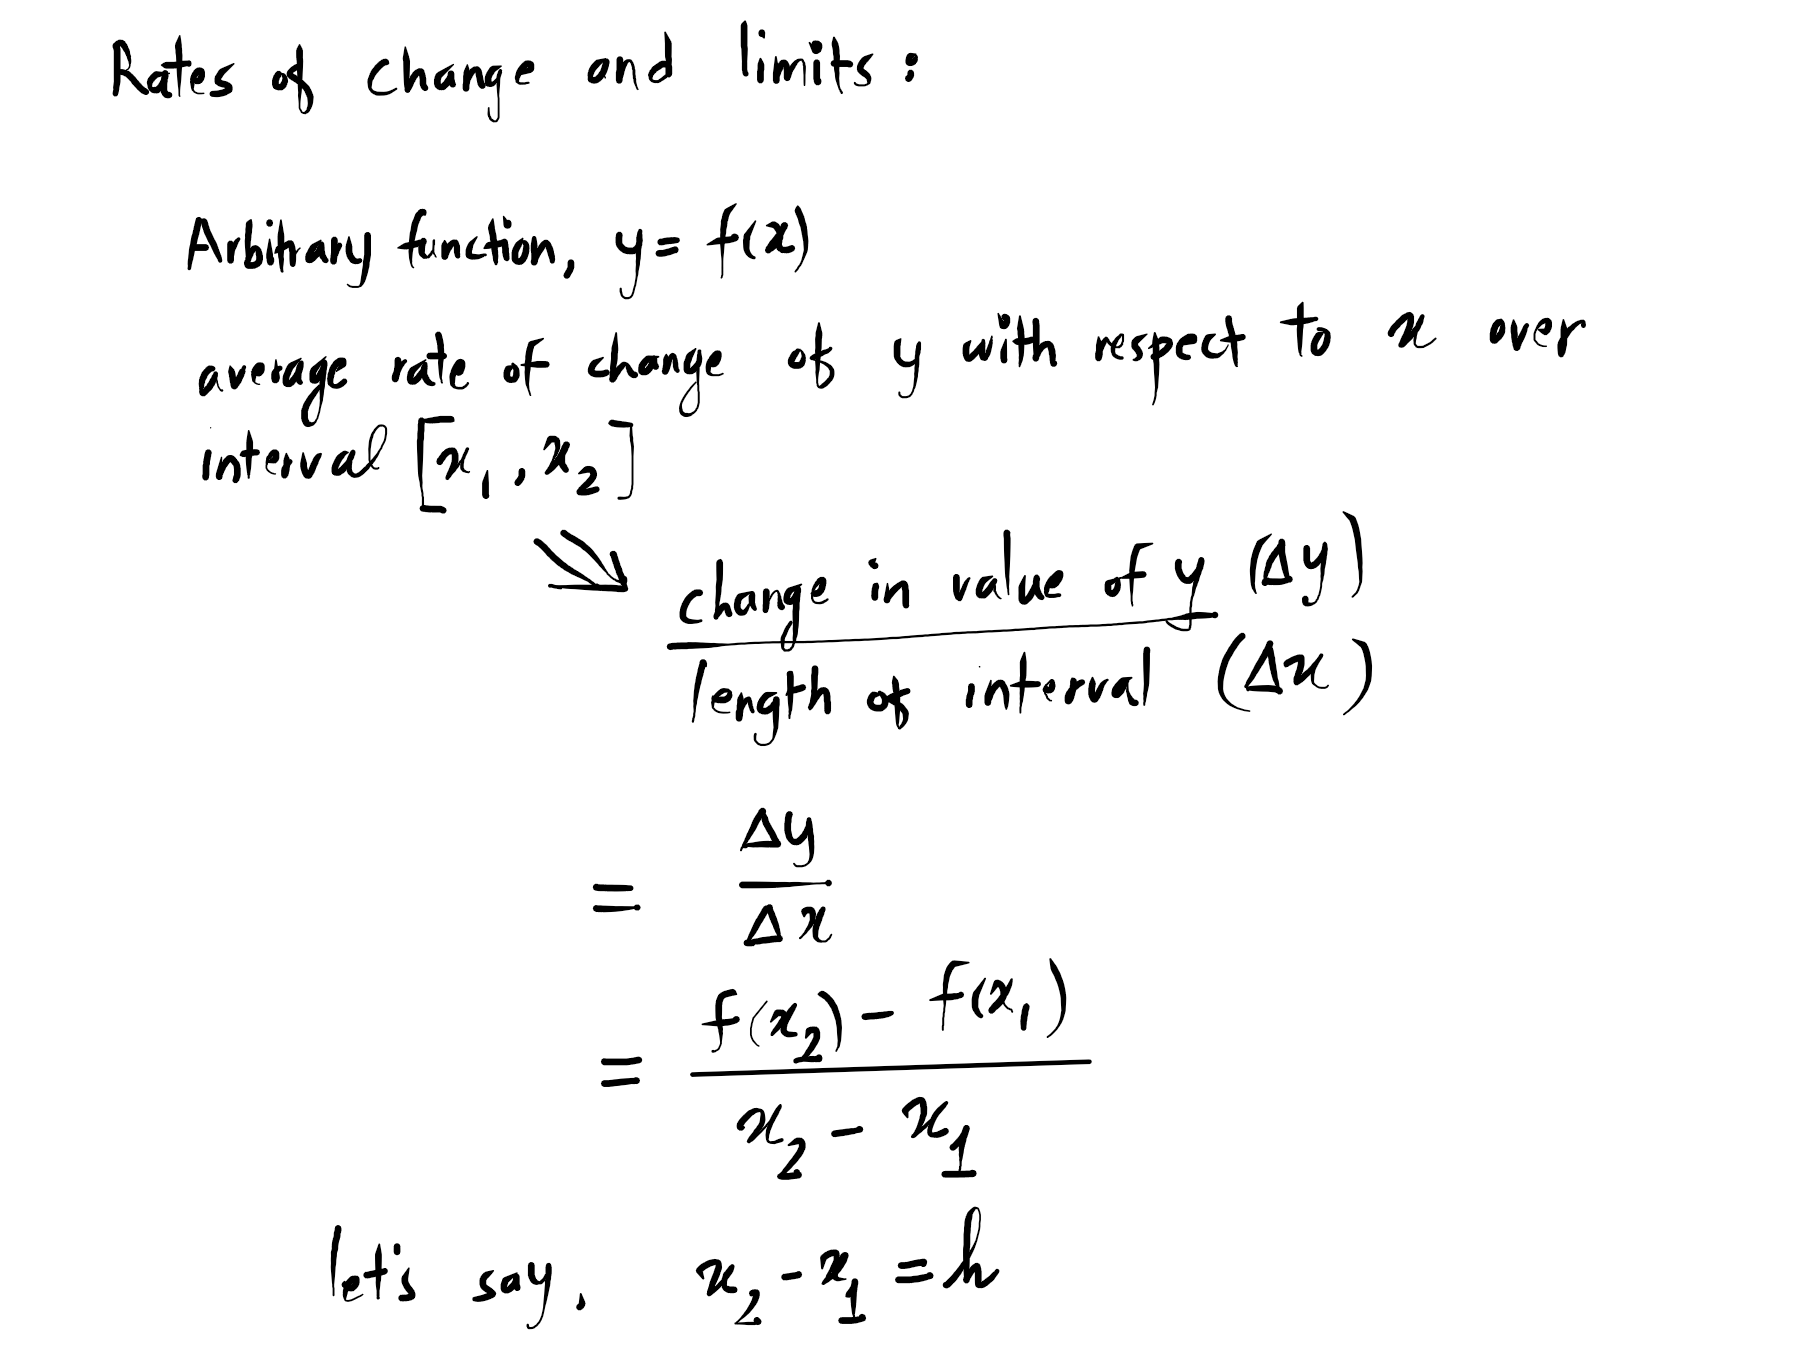 Rates of change and limits:
Arbitrary function, y = f(x)
average rate of change of y with respect to x over
interval [x₁, x₂]
change in value of y (Δy)
length of interval (Δx)
= Δy
Δx
= f(x₂) - f(x₁)
x₂ - x₁
let's say, x₂ - x₁ = h